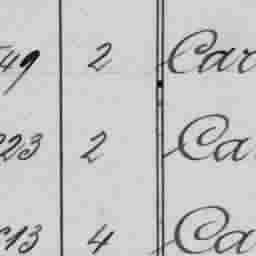 49 2 Car
23 2 Ca
13 4 Ca